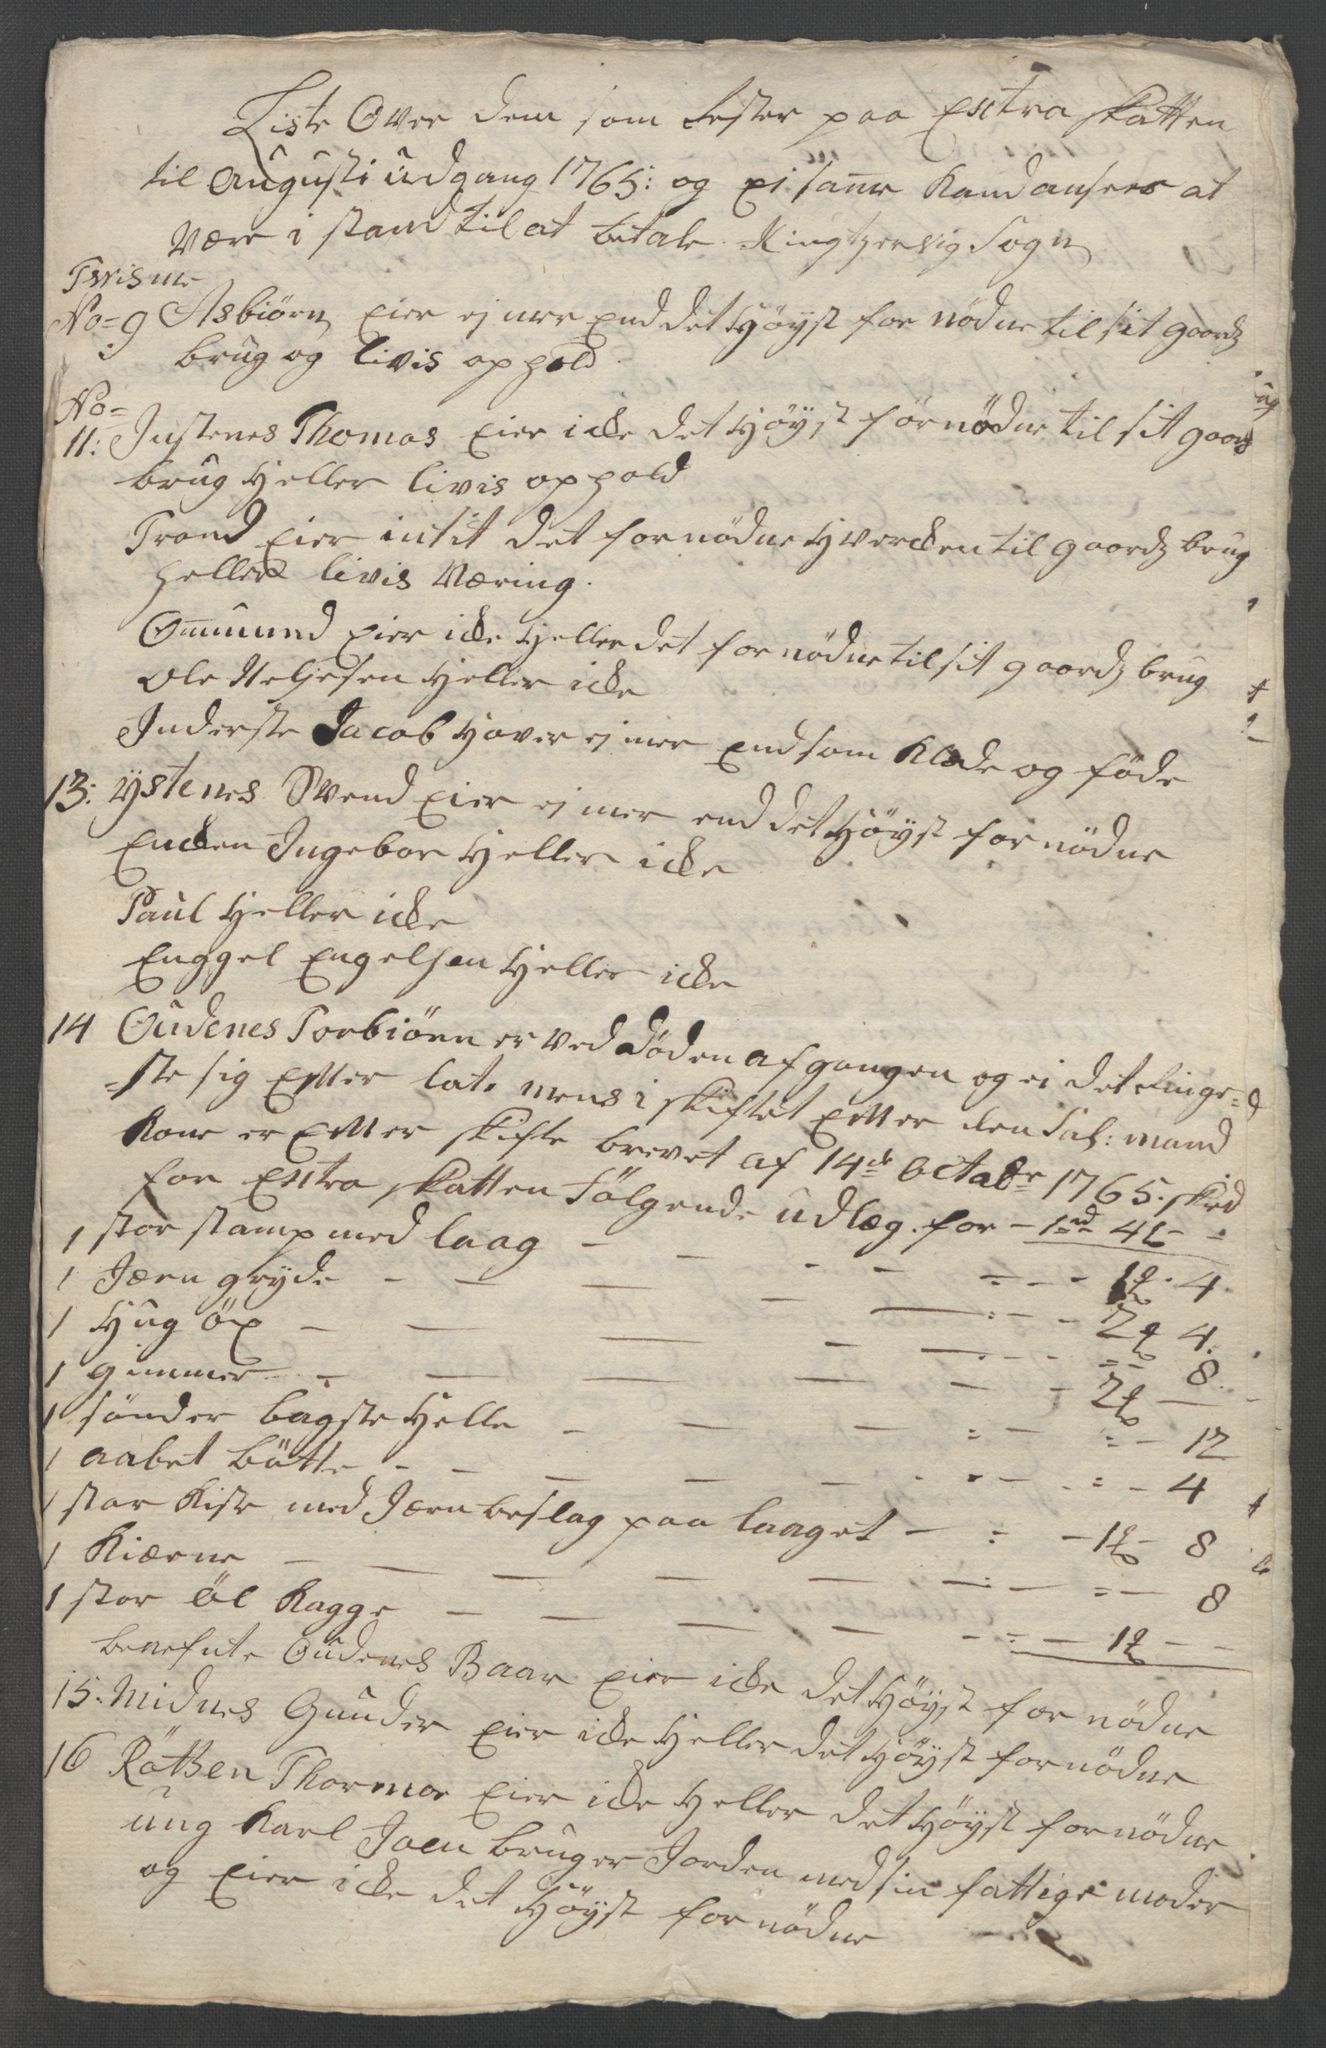 Liste Over dem som Rester paa Extra Skatten
til Augusti udgang 1765: og ei same Kand ansees at
være i stand til at betale. Kingtzervig Sogn
Twisme
No= 9 Asbiørn Eier ej mer End det Høyst for nødne til sit gaardz
brug og livis ophold
No=
11: Justenes Thomas Eier icke det Høyst før nødne til sit gaards
brug Heller livis ophold
Trond Eier intit det for nødne Hvercken til gaardz brug
heller livis Næring.
Omund Eier icke Heller det for nødne til sit gaardz brug
Ole Heljesen Heller icke
Inderste Jacob Haver ej mer End som Klæde og føde
13: Ystenes Svend Eier ej mer end det Høyst for nødne
Encken Ingebor Heller icke
Paul Heller icke
Enggel Engelsen Heller icke
14 Oudenes Torbiørn er ved Døden afgangen og ei det Ringe=
=ste sig Efter lat. mens i skiftet Efter den Sal: mand
Kone er Efter skifte brevet af 14de octobr 1765. skeed
for Extra skatten Følgende udlæg. for - 1rd 4 - -
1 stor stamp med laag - - - - 1 - 4
1 Jærn gryde - - - - 2 4
1 Hug øx - - - - 8
1 gimmer - - - - 2 -
1 sønder bagste Helle - - - - 12
1 aabet bøtte - - - - 4
1 stor Kiste med Jærn beslag paa laaget - - 1 - 8
1 Kiærne - - - - 8
1 stor øl Kagge - - - - 1 - -
benefnte Oudenes Baar Eier icke det Høyst for nødne
15: Midnes Gunder Eier icke Heller det Høyst for nødne
16 Røtsen Thormo Eier icke Heller det Høyst for nødne
ung Karl Joen bruger Jorden med sin fattige moder
og Eier icke det Høyst for nødne